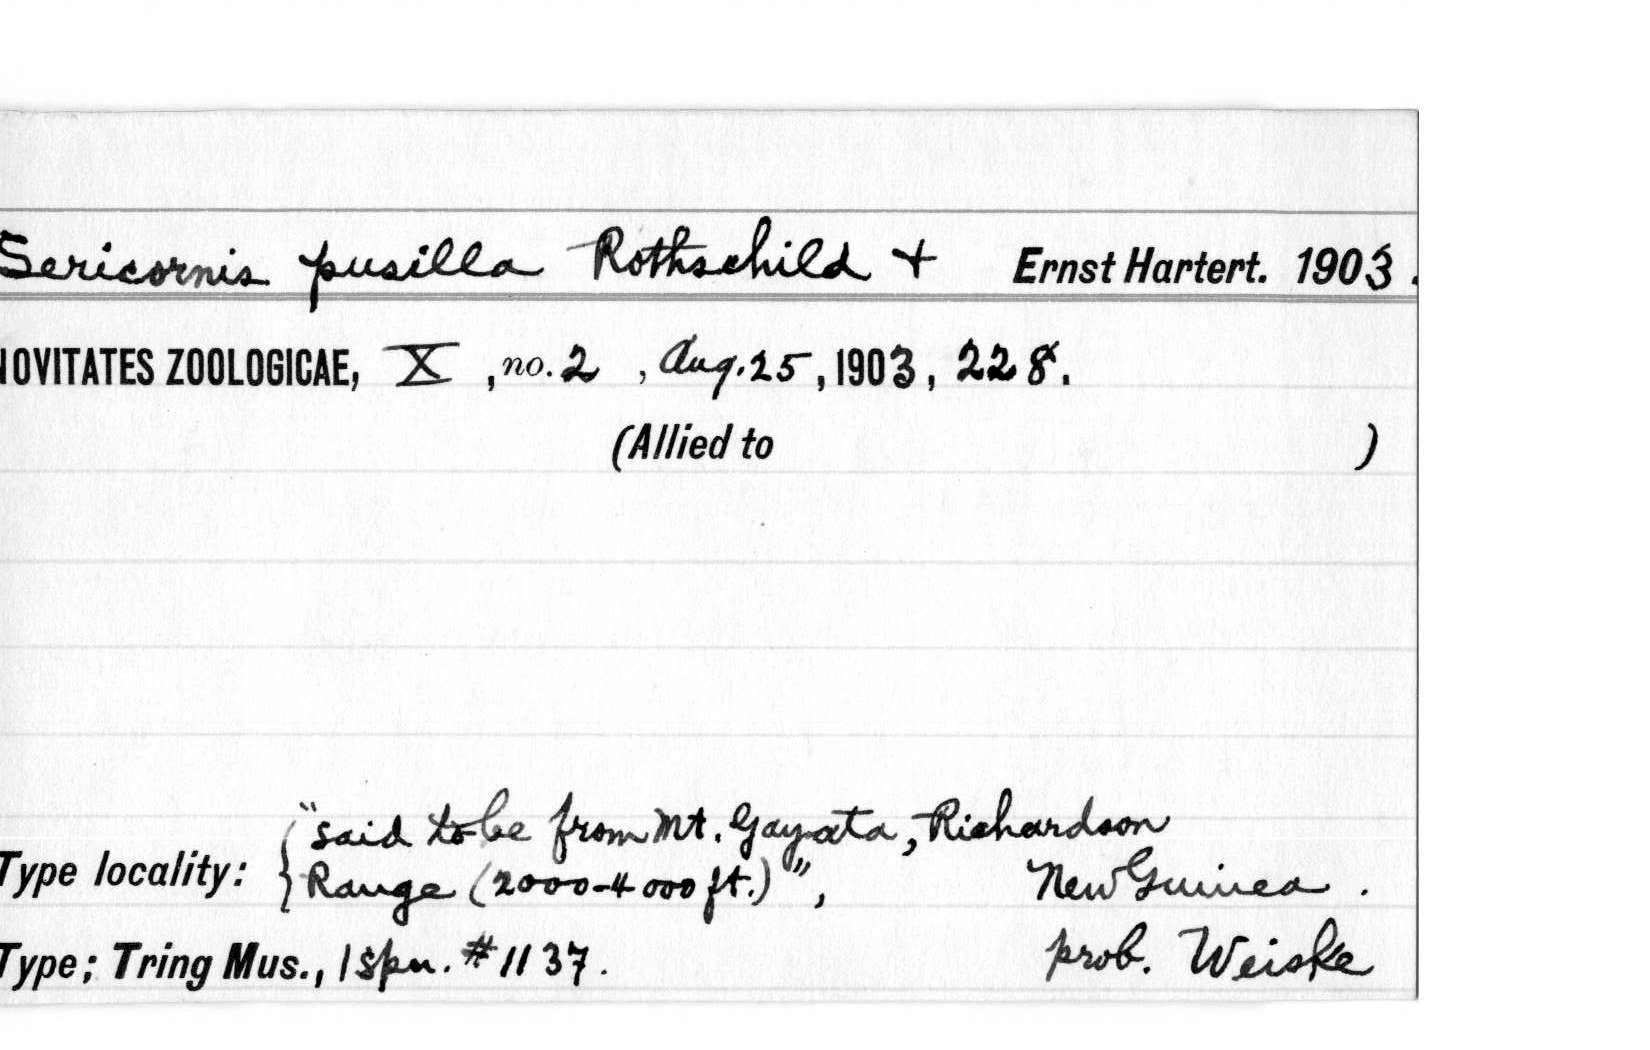 Sericornis pusilla Rothschild + Ernst Hartert. 1903.
NOVITATES ZOOLOGICAE, X, no. 2, Aug. 25, 1903, 228.
(Allied to )
"said to be from Mt. Gayata, Richardson
Type locality: Range (2000-4000 ft.)", New Guinea.
Type; Tring Mus., 1 spn. #1137. prob. Weiske